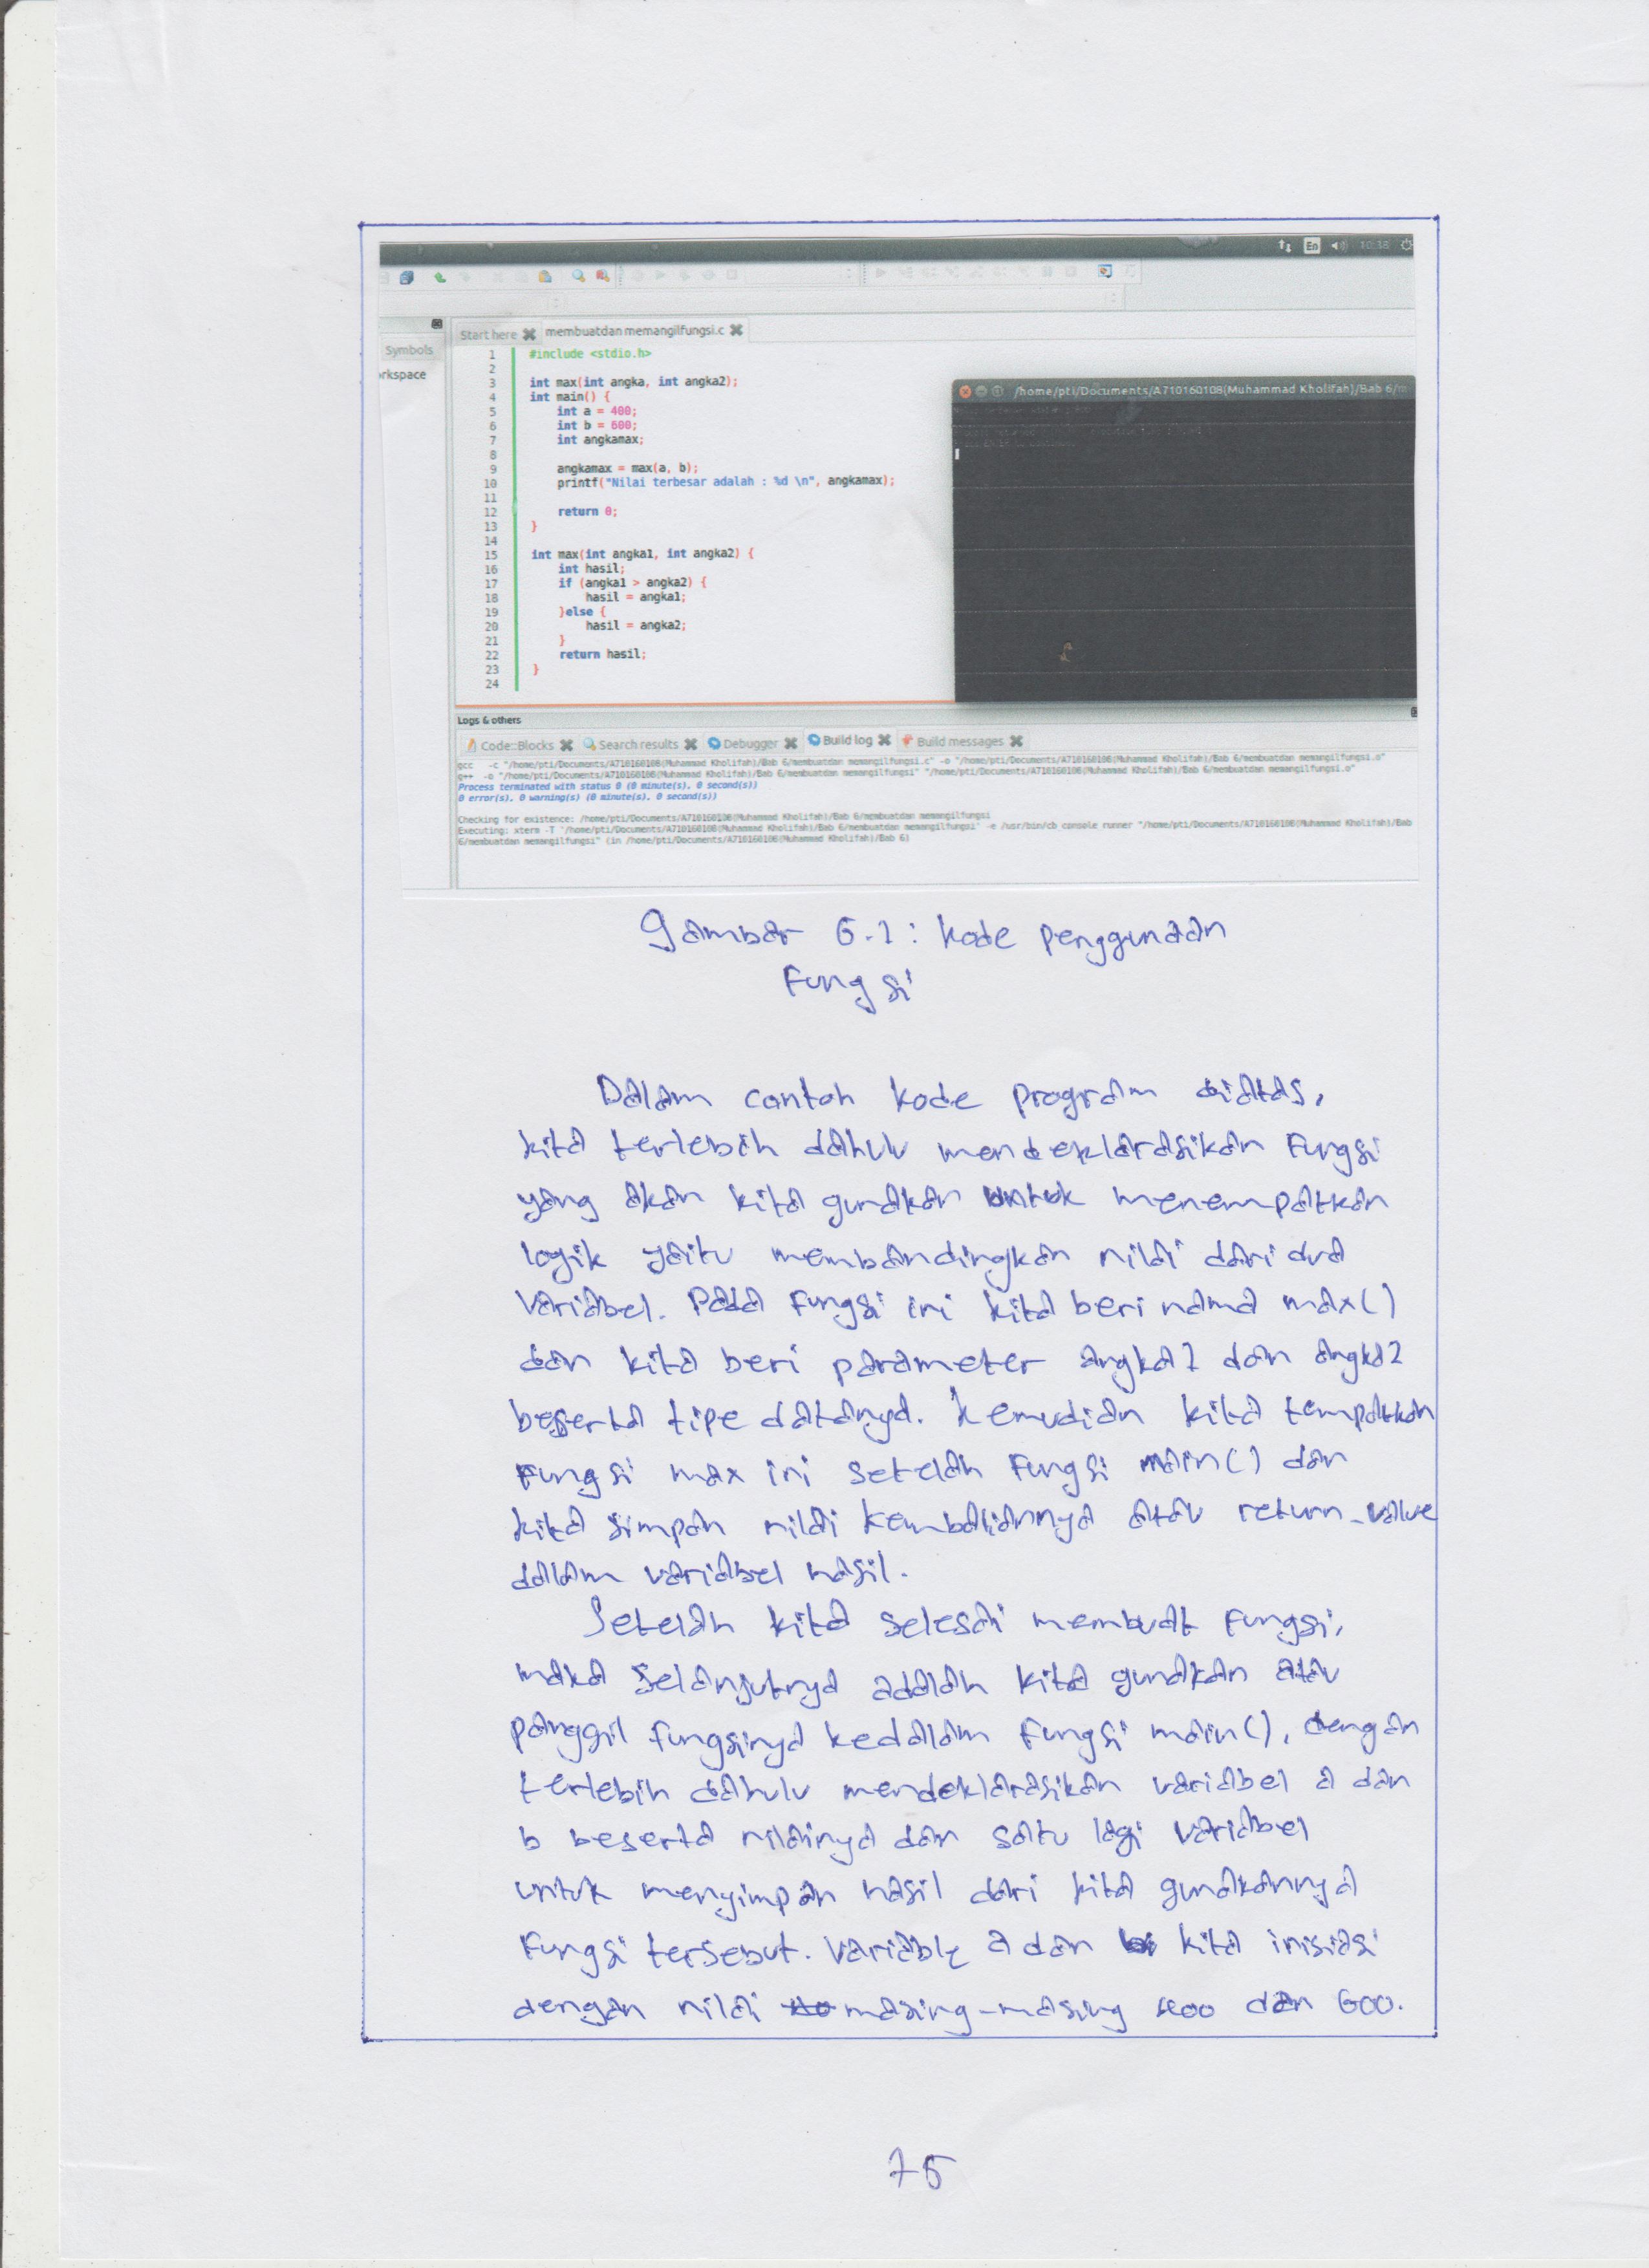 En 10:38
Start here membuatdan memangilfungsi.c
Symbols
rkspace
1 #include <stdio.h>
2
3 int max(int angka, int angka2);
4 int main() {
5 int a = 400;
6 int b = 600;
7 int angkamax;
8
9 angkamax = max(a, b);
10 printf("Nilai terbesar adalah : %d \n", angkamax);
11
12 return 0;
13 }
14
15 int max(int angka1, int angka2) {
16 int hasil;
17 if (angka1 > angka2) {
18 hasil = angka1;
19 }else {
20 hasil = angka2;
21 }
22 return hasil;
23 }
24
/home/pti/Documents/A710160108(Muhammad Kholifah)/Bab 6/m
Logs & others
Code::Blocks Search results Debugger Build log Build messages
gcc -c "/home/pti/Documents/A710160108(Muhammad Kholifah)/Bab 6/membuatdan memangilfungsi.c" -o "/home/pti/Documents/A710160108(Muhammad Kholifah)/Bab 6/membuatdan memangilfungsi.o"
g++ -o "/home/pti/Documents/A710160108(Muhammad Kholifah)/Bab 6/membuatdan memangilfungsi" "/home/pti/Documents/A710160108(Muhammad Kholifah)/Bab 6/membuatdan memangilfungsi.o"
Process terminated with status 0 (0 minute(s), 0 second(s))
0 error(s), 0 warning(s) (0 minute(s), 0 second(s))
Checking for existence: /home/pti/Documents/A710160108(Muhammad Kholifah)/Bab 6/membuatdan memangilfungsi
Executing: xterm -T '/home/pti/Documents/A710160108(Muhammad Kholifah)/Bab 6/membuatdan memangilfungsi' -e /usr/bin/cb_console_runner "/home/pti/Documents/A710160108(Muhammad Kholifah)/Bab
6/membuatdan memangilfungsi" (in /home/pti/Documents/A710160108(Muhammad Kholifah)/Bab 6)
Gambar 6.1 : kode penggunaan
Fungsi
Dalam contoh kode program diatas,
kita terlebih dahulu mendeklarasikan Fungsi
yang akan kita gunakan untuk menempatkan
logik yaitu membandingkan nilai dari dua
variabel. Pada fungsi ini kita beri nama max()
dan kita beri parameter angka1 dan angka2
beserta tipe datanya. Kemudian kita tempatkan
Fungsi max ini setelah Fungsi main() dan
kita simpan nilai kembaliannya atau return_value
dalam variabel hasil.
Setelah kita selesai membuat Fungsi,
maka selanjutnya adalah kita gunakan atau
panggil fungsinya kedalam fungsi main(), dengan
terlebih dahulu mendeklarasikan variabel a dan
b beserta nilainya dan satu lagi variabel
untuk menyimpan hasil dari kita gunakannya
Fungsi tersebut. Variable a dan b kita inisiasi
dengan nilai masing-masing 400 dan 600.
75